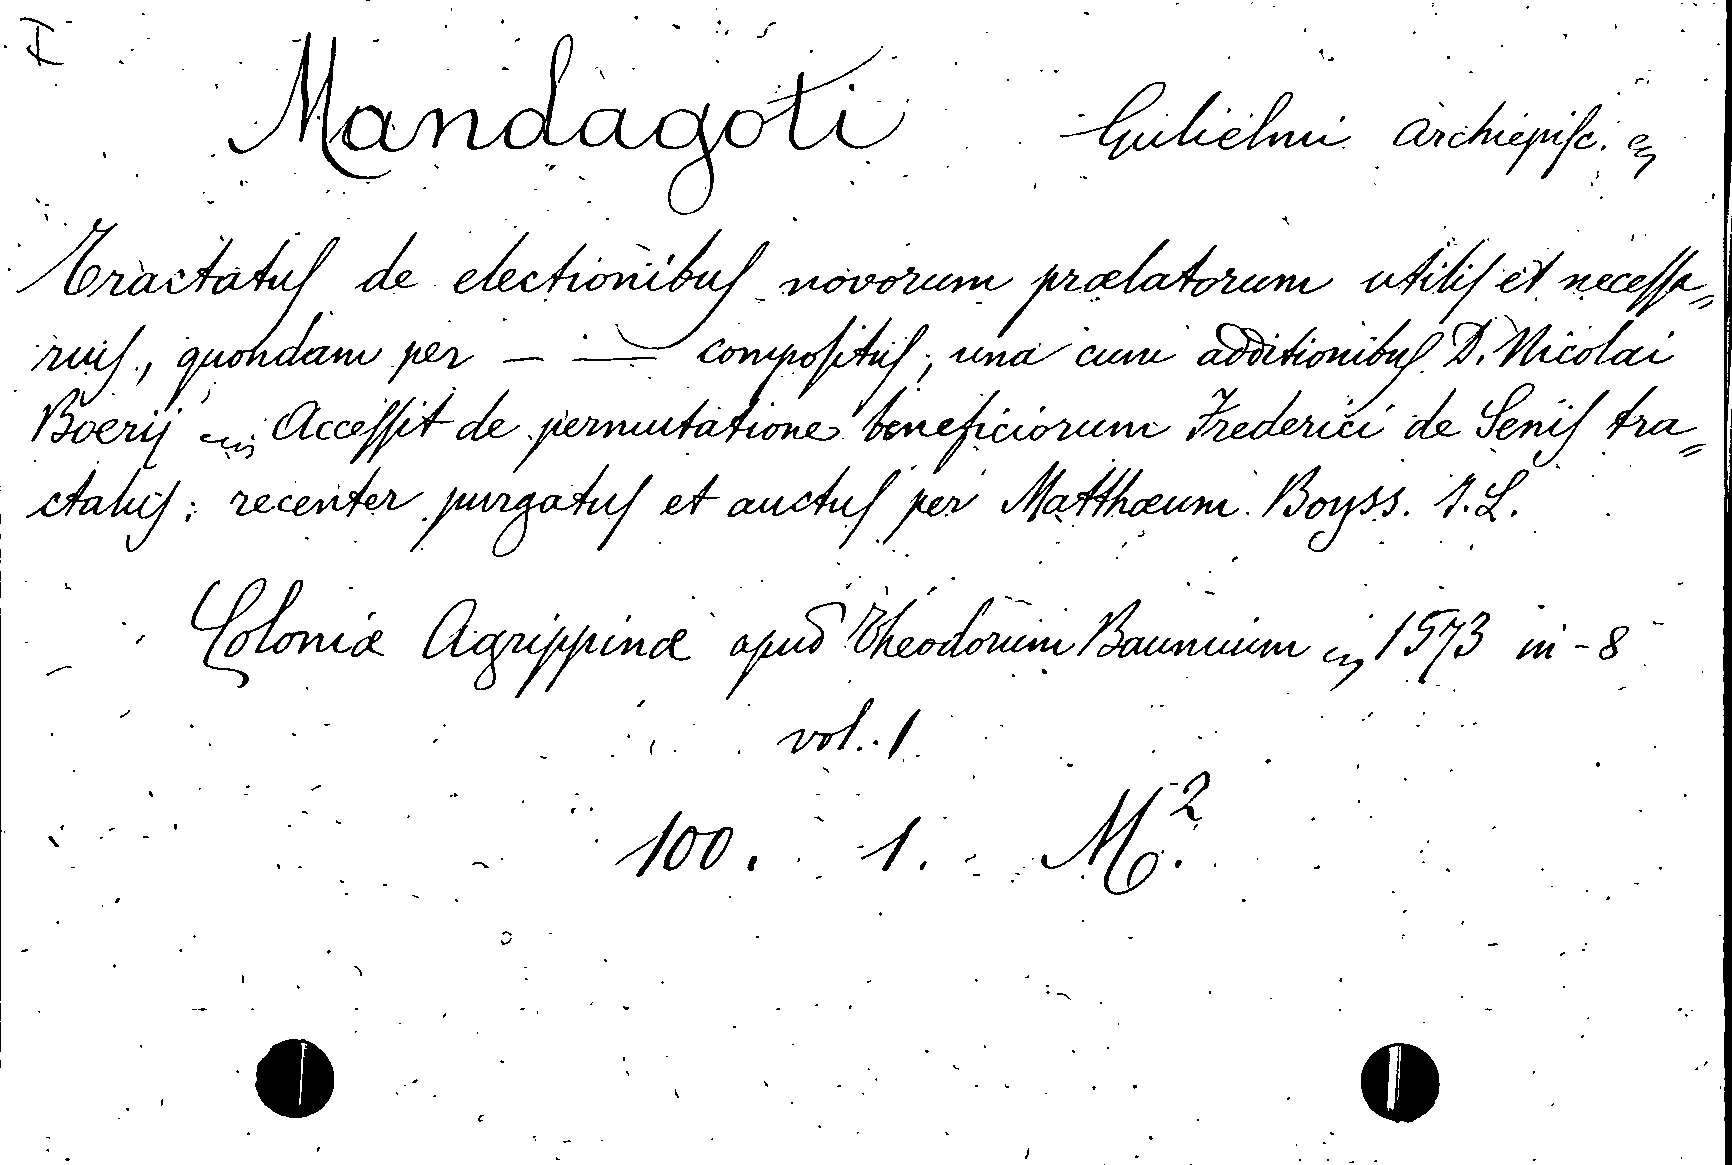 I
Mandagoti Gulielmi Archiepisc.
Tractatus de electionibus novorum prælatorum utilis et necessa=
rius, quondam per — — compositus, una cum additionibus D. Nicolai
Boerij Accessit de permutatione beneficiorum Frederici de Senis tra=
ctatus: recenter purgatus et auctus per Matthæum Boyss. I. L.
Coloniæ Agrippinæ apud Theodorum Baumium 1573 in-8
vol. 1
100. 1. M².